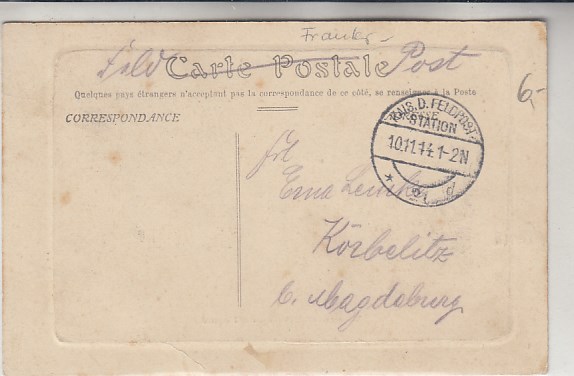 Frankr.
Feld Carte Postale Post
Quelques pays étrangers n'acceptent pas la correspondance de ce côté, se renseigner à la Poste
6,-
CORRESPONDANCE
KAIS. D. FELDPOST
STATION
10.11.14.1-2N
Frl
Erna
Körbelitz
b. Magdeburg